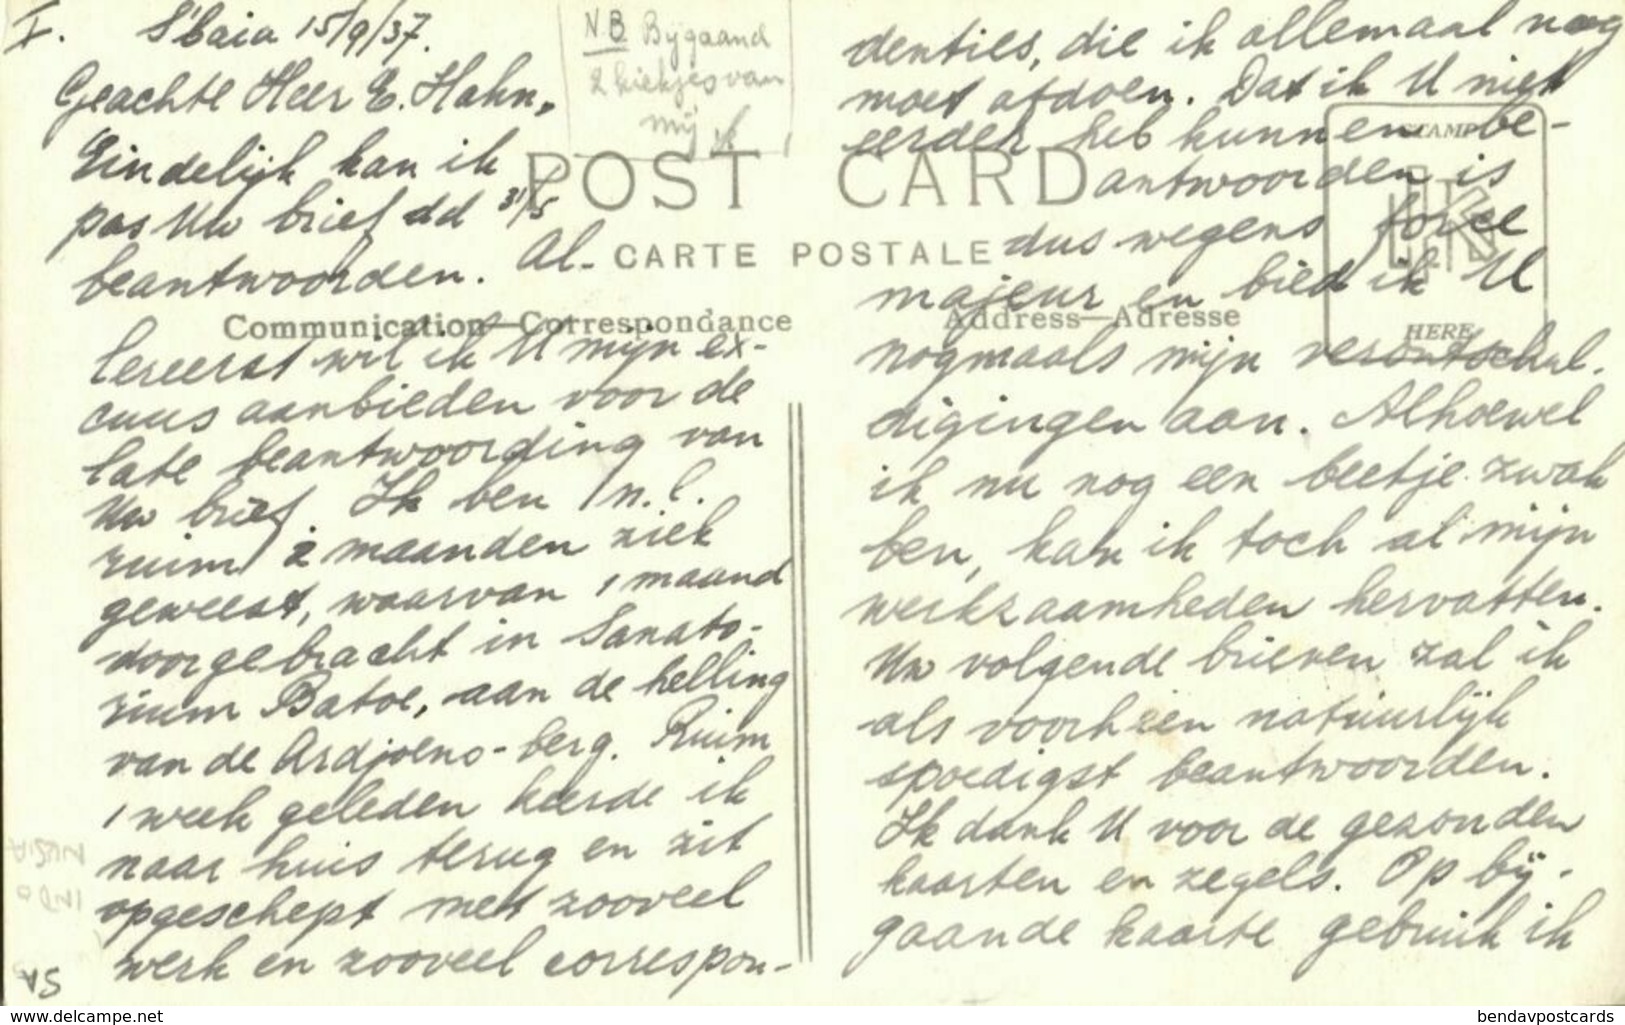 I. S'baia 15/9/37.
N.B Bijgaand
2 kiekjes van
mij
Geachte Heer E. Hahn,
Eindelijk kan ik
pas Uw brief dd 31/5
beantwoorden. Al-
lereerst wil ik U mijn ex-
cuus aanbieden voor de
late beantwoording van
Uw brief. Ik ben n.l.
ruim 2 maanden ziek
geweest, waarvan 1 maand
doorgebracht in Sanato-
rium Batoe, aan de helling
van de Ardjoeno-berg. Ruim
1 week geleden keerde ik
naar huis terug en zit
opgeschept met zooveel
werk en zooveel correspon-
POST CARD
CARTE POSTALE
Communication—Correspondance
Address—Adresse
STAMP
HERE
denties, die ik allemaal nog
moet afdoen. Dat ik U niet
eerder heb kunnen be-
antwoorden is
dus wegens force
majeur en bied ik U
nogmaals mijn verontschul-
digingen aan. Alhoewel
ik nu nog een beetje zwak
ben, kan ik toch al mijn
werkzaamheden hervatten.
Uw volgende brieven zal ik
als voorheen natuurlijk
spoedigst beantwoorden.
Ik dank U voor de gezonden
kaarten en zegels. Op bij-
gaande kaarte gebruik ik
INDO
NESIA
SA
www.delcampe.net
bendavpostcards